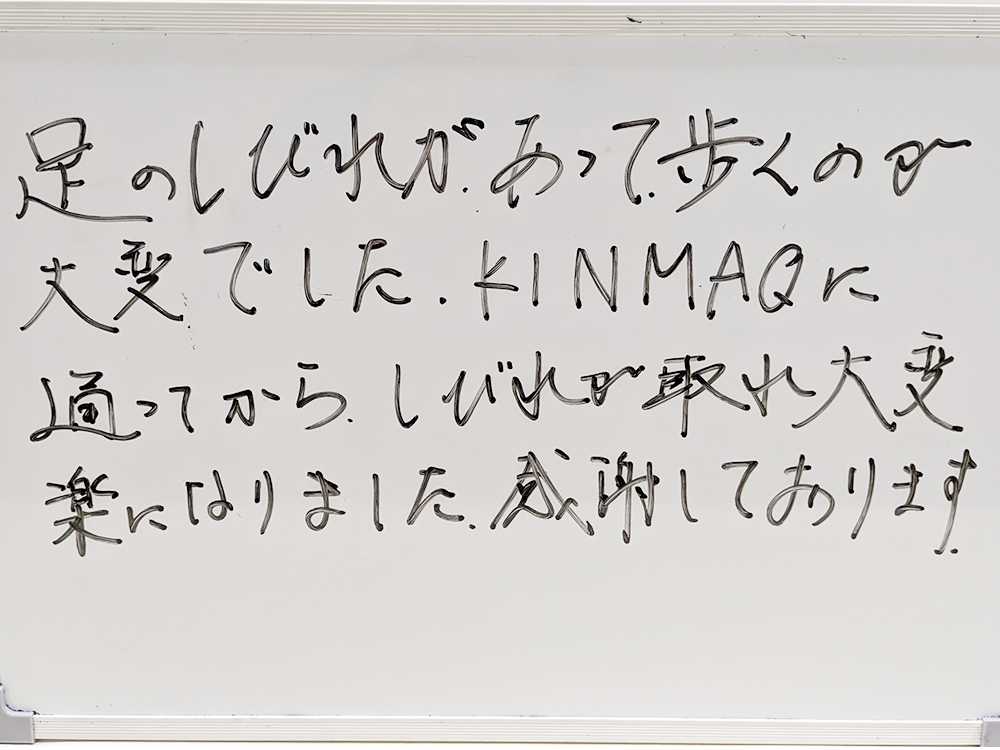 足のしびれが、あって、歩くのが
大変でした。KINMAQに
通ってから、しびれが取れ大変
楽になりました。感謝しております。